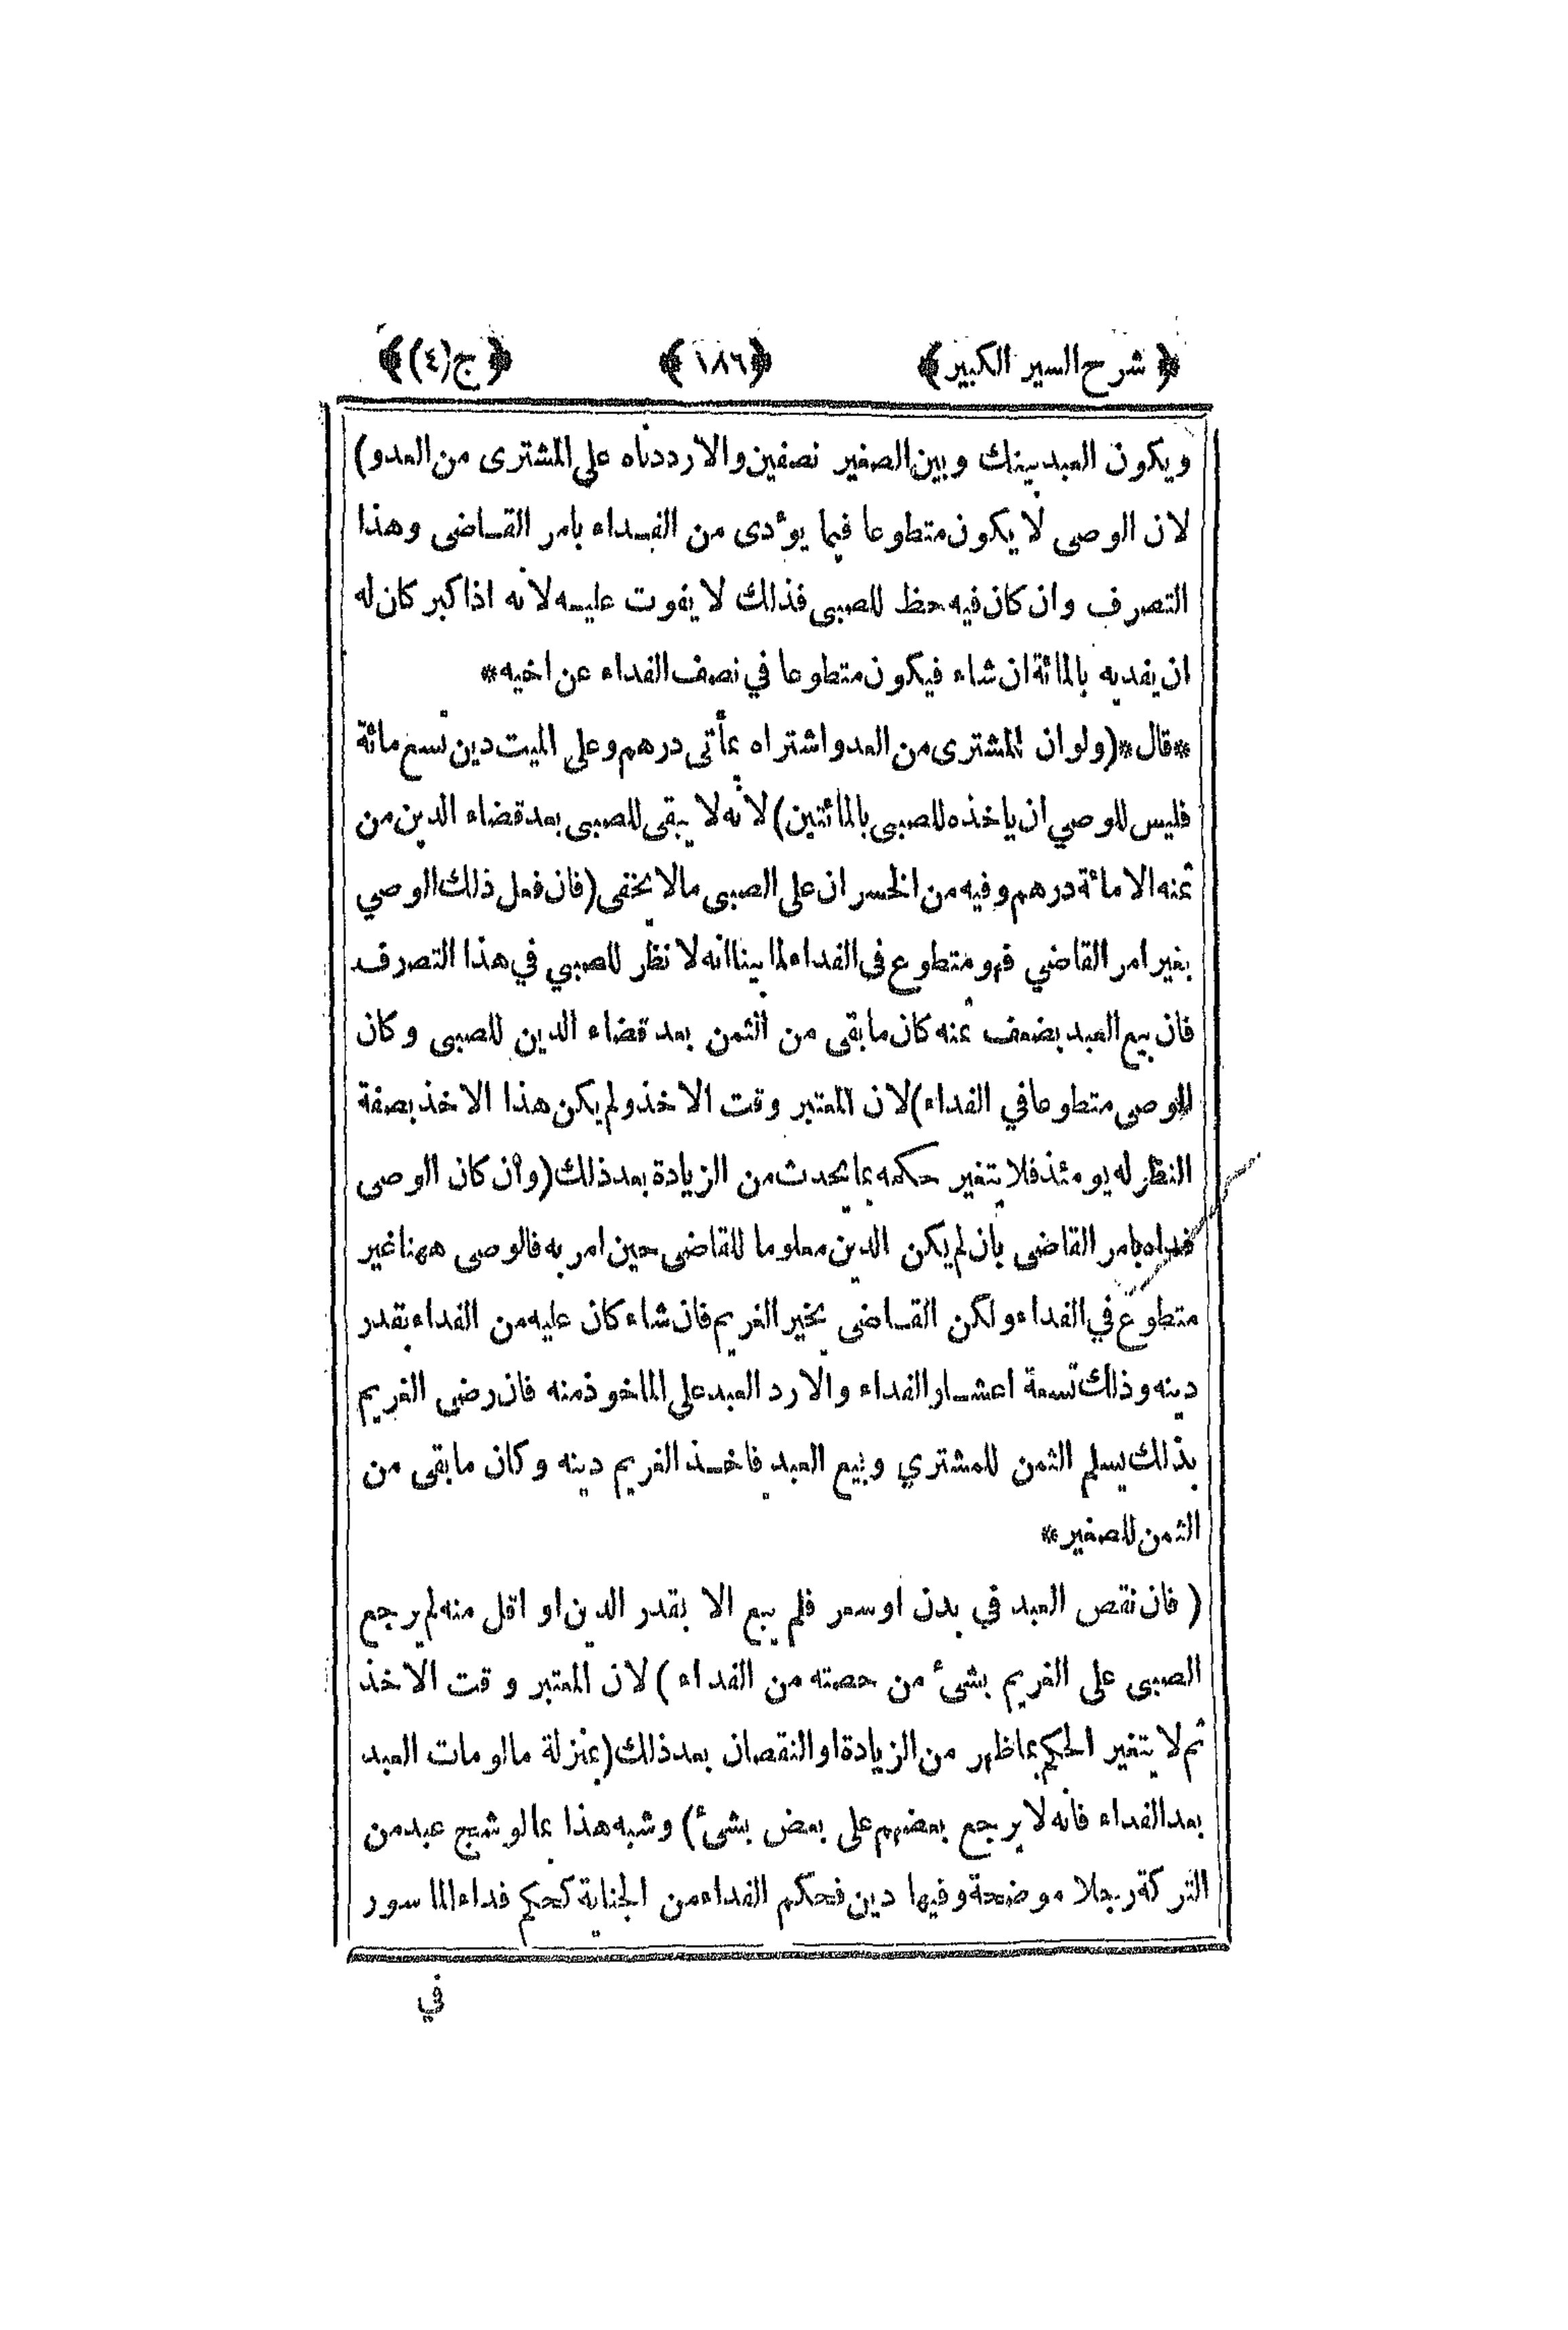 ﴿ شرح السير الكبير ﴾ ﴿ ١٨٦ ﴾ ﴿ ج (٤) ﴾
ويكون العبد بينك وبين الصغير نصفين والا رددناه على المشترى من العدو )
لان الوصى لا يكون متطوعا فيما يؤدى من الفداء بامر القاضى وهذا
التصرف وان كان فيه حظ للصبى فذلك لا يفوت عليه لانه اذا كبر كان له
ان يفديه بالمائة ان شاء فيكون متطوعا في نصف الفداء عن اخيه *
* قال * ( ولو ان المشترى من العدو اشتراه بمأتى درهم وعلى الميت دين تسع مائة
فليس للوصي ان ياخذه للصبى بالمائتين ) لانه لا يبقى للصبى بعد قضاء الدين من
ثمنه الا مائة درهم وفيه من الخسران على الصبى مالا يخفى ( فان فعل ذلك الوصي
بغير امر القاضي فهو متطوع فى الفداء لما بينا انه لا نظر للصبي في هذا التصرف
فان بيع العبد بضعف ثمنه كان ما بقى من الثمن بعد قضاء الدين للصبى وكان
الوصى متطوعا في الفداء ) لان المعتبر وقت الاخذ ولم يكن هذا الاخذ بصفة
النظر له يومئذ فلا يتغير حكمه بما يحدث من الزيادة بعد ذلك ( وان كان الوصى
فداه بامر القاضى بان لم يكن الدين معلوما للقاضى حين امر به فالوصى ههنا غير
متطوع في الفداء ولكن القاضى يخير الغريم فان شاء كان عليه من الفداء بقدر
دينه وذلك تسعة اعشار الفداء والا رد العبد على الماخوذ منه فان رضى الغريم
بذلك يسلم الثمن للمشتري وبيع العبد فاخذ الغريم دينه وكان ما بقى من
الثمن للصغير *
( فان نقص العبد في بدن او سعر فلم يبع الا بقدر الدين او اقل منه لم يرجع
الصبى على الغريم بشئ من حصته من الفداء ) لان المعتبر وقت الاخذ
ثم لا يتغير الحكم بما ظهر من الزيادة او النقصان بعد ذلك ( بمنزلة ما لو مات العبد
بعد الفداء فانه لا يرجع بعضهم على بعض بشئ ) وشبه هذا بما لو شج عبد من
التركة رجلا موضحة وفيها دين فحكم الفداء من الجناية كحكم فداء الماسور
في